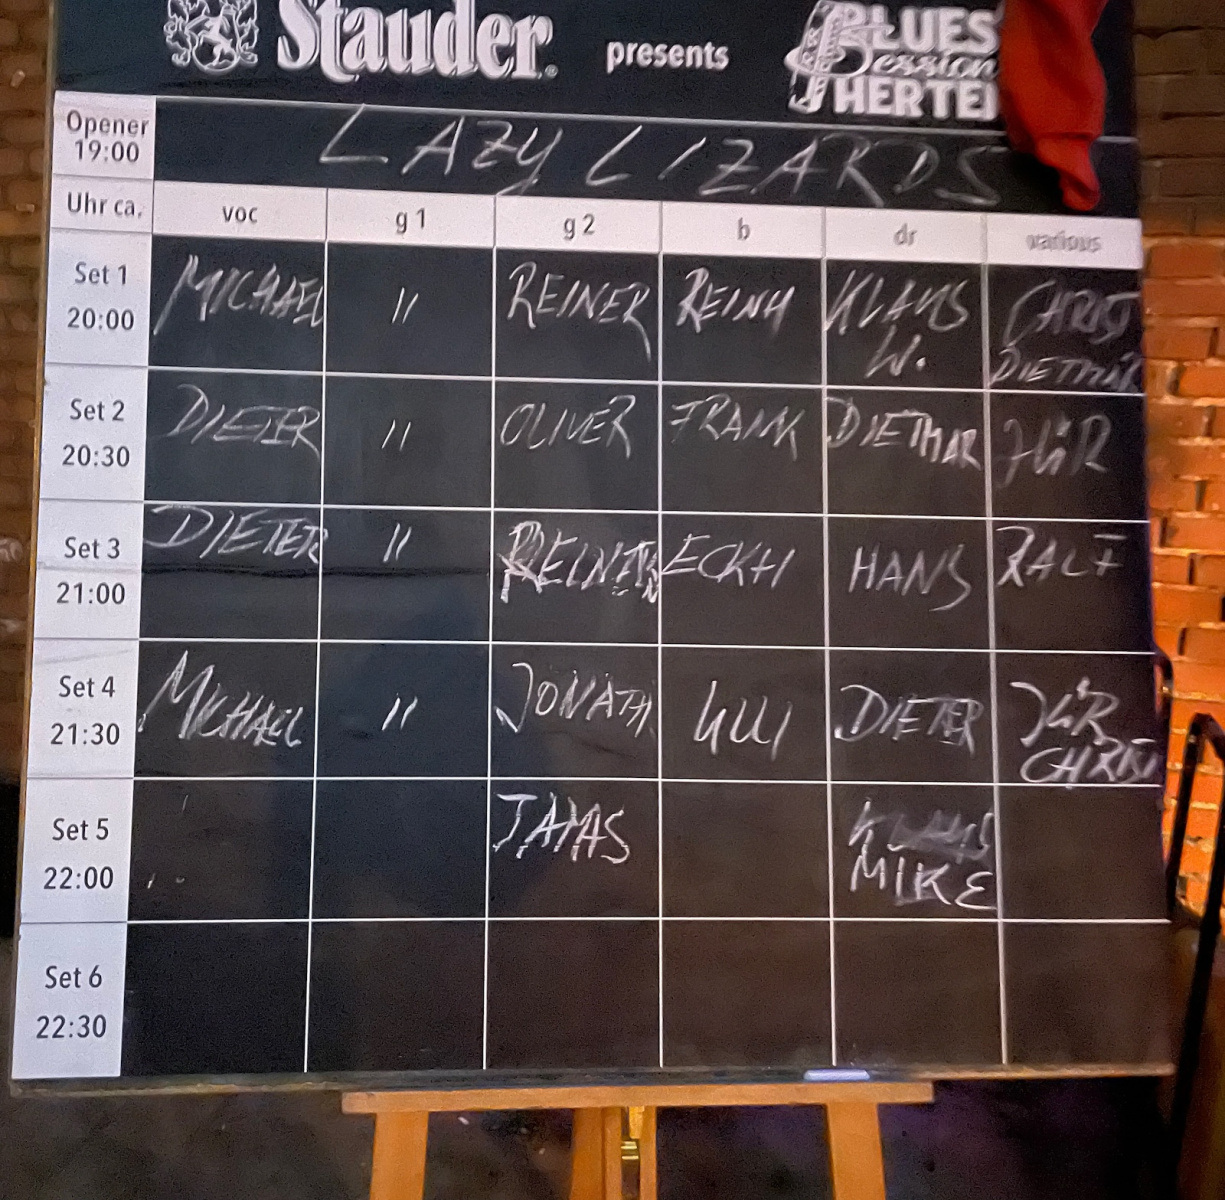 Stauder presents BLUES Session HERTEN
Opener 19:00 LAZY LIZARDS
Uhr ca. voc g 1 g 2 b dr various
Set 1 20:00 MICHAEL " REINER REINH KLAUS W. CHRIST DIETMAR
Set 2 20:30 DIETER " OLIVER FRANK DIETMAR
Set 3 21:00 DIETER " REINER ECKHI HANS RALF
Set 4 21:30 MICHAEL " JONATH ULLI DIETER CHRIS
Set 5 22:00 JAMAS KLAUS MIKE
Set 6 22:30